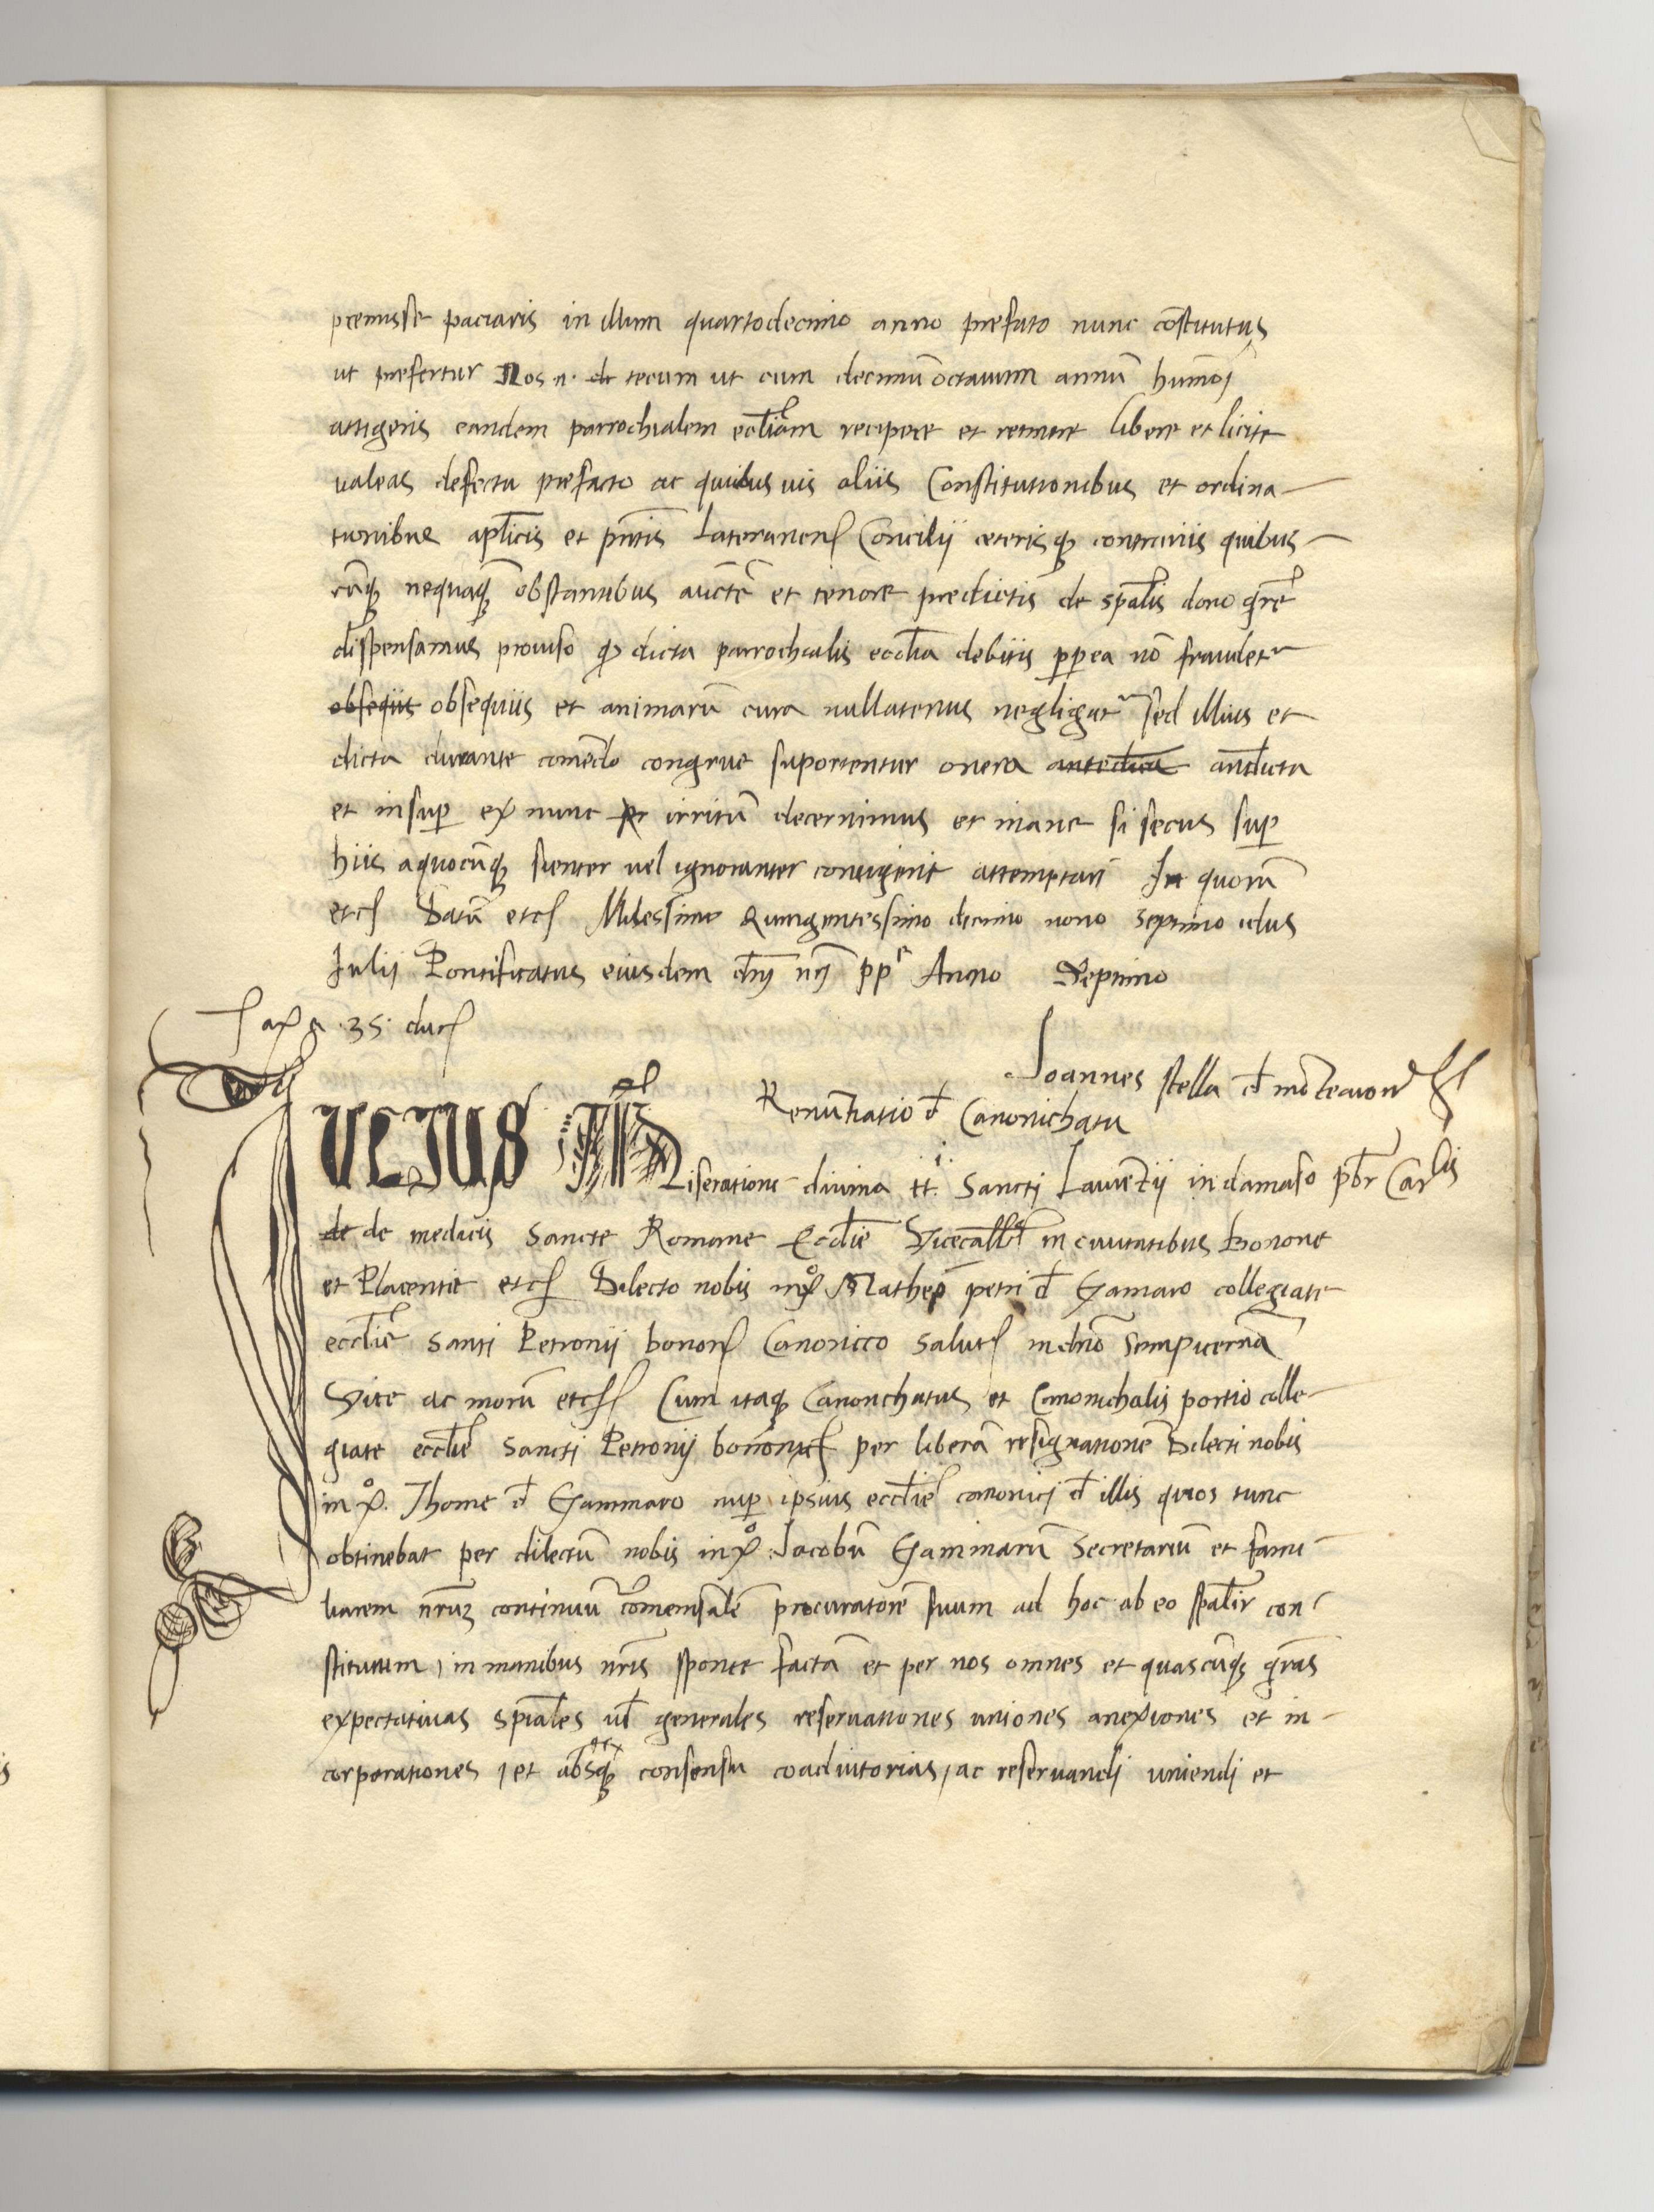 premisse paciaris in illum quartodecimo anno prefato nunc cōstitutus
ut prefertur Nos .n. de tecum ut cum decimū octauum annū humōi
attigeris eandem parrochialem eccliam recipere et retinere libere et licite
ualeas defectu prefacto ac quibus uis aliis Constitutionibus et ordina-
tionibus aplicis et Lateranen Concilij ceterisq contrariis quibus-
cūq nequaq obstantibus aucte et tenore predictis de spālis dono grē
dispensamus prouiso q dicta parrochialis ecclia debitis pp ea nō fraudet
obseqiis obsequiis et animarū cura nullatenus negligat sed illius et
dicta durante comēdo congrue suportentur onera antedicta antdicta
et insup ex nunc irritū decernimus et inane si secus sup
hiis aquocūq scienter uel ignoranter contigerit attemptari In quorū
etc Datū etc Milessimo Quingentessimo decimo nono septimo idus
Julij Pontificatus eiusdem dnj nrj pp Anno Septimo
Taxa .35. duc
Joannes stella d
Renuntiatio d Canonichatu
Julius Miseratione diuina tt. Sancti Laurētij in damaso pbr Carlis
de de medicis Sancte Romane Ecclie Vicecall in ciuitatibus Bonone
et Placentie etc Dilecto nobis in xo Matheo petri d Gamaro collegiate
ecclie Santi Petronij bonon Canonicco Salut in dnō Sempiternā
Vite ac morū etc Cum itaq Canonchatus et Canonichalis portio colle-
giate ecclie Sancti Petronij per liberā resignationē Dilecti nobis
in xo. Thome d Gammaro nup ipsius ecclie canonici d illis quos tunc
obtinebat per dilectū nobis in xo Jacobū Gammarū Secretariū et fami-
liarem nrūz continuū comensalē procuratorē suum ad hoc ab eo spalir con-
stitutum, in manibus nris sponte factā et per nos omnes et quascūq gras
expectatiuas spiales ul generales reseruationes uniones anexiones et in-
corporationes, et absq consensu coadiutorias, ac reseruandi uniendi et